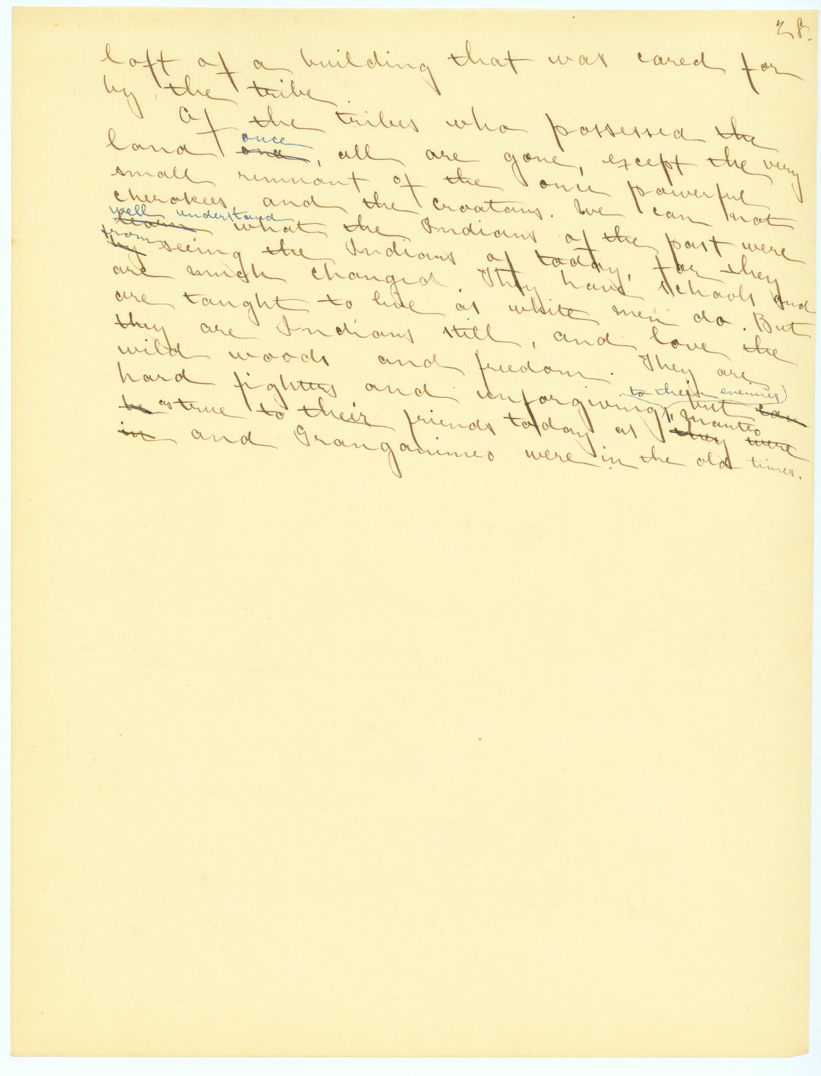 28.
loft of a building that was cared for
by the tribe.
Of the tribes who possessed the
once
land and, all are gone, except the very
small remnant of the once powerful
cherokees, and the croatans. We can not
well understand
learn what the Indians of the past were
from
by seeing the Indians of today, for they
are much changed. They have schools and
are taught to live as white men do. But
they are Indians still, and love the
wild woods and freedom. They are
hard fighters and unforgiving, but can
to their enemies
be as true to their friends today as they were
Manteo
in and Granganimeo were in the old times.